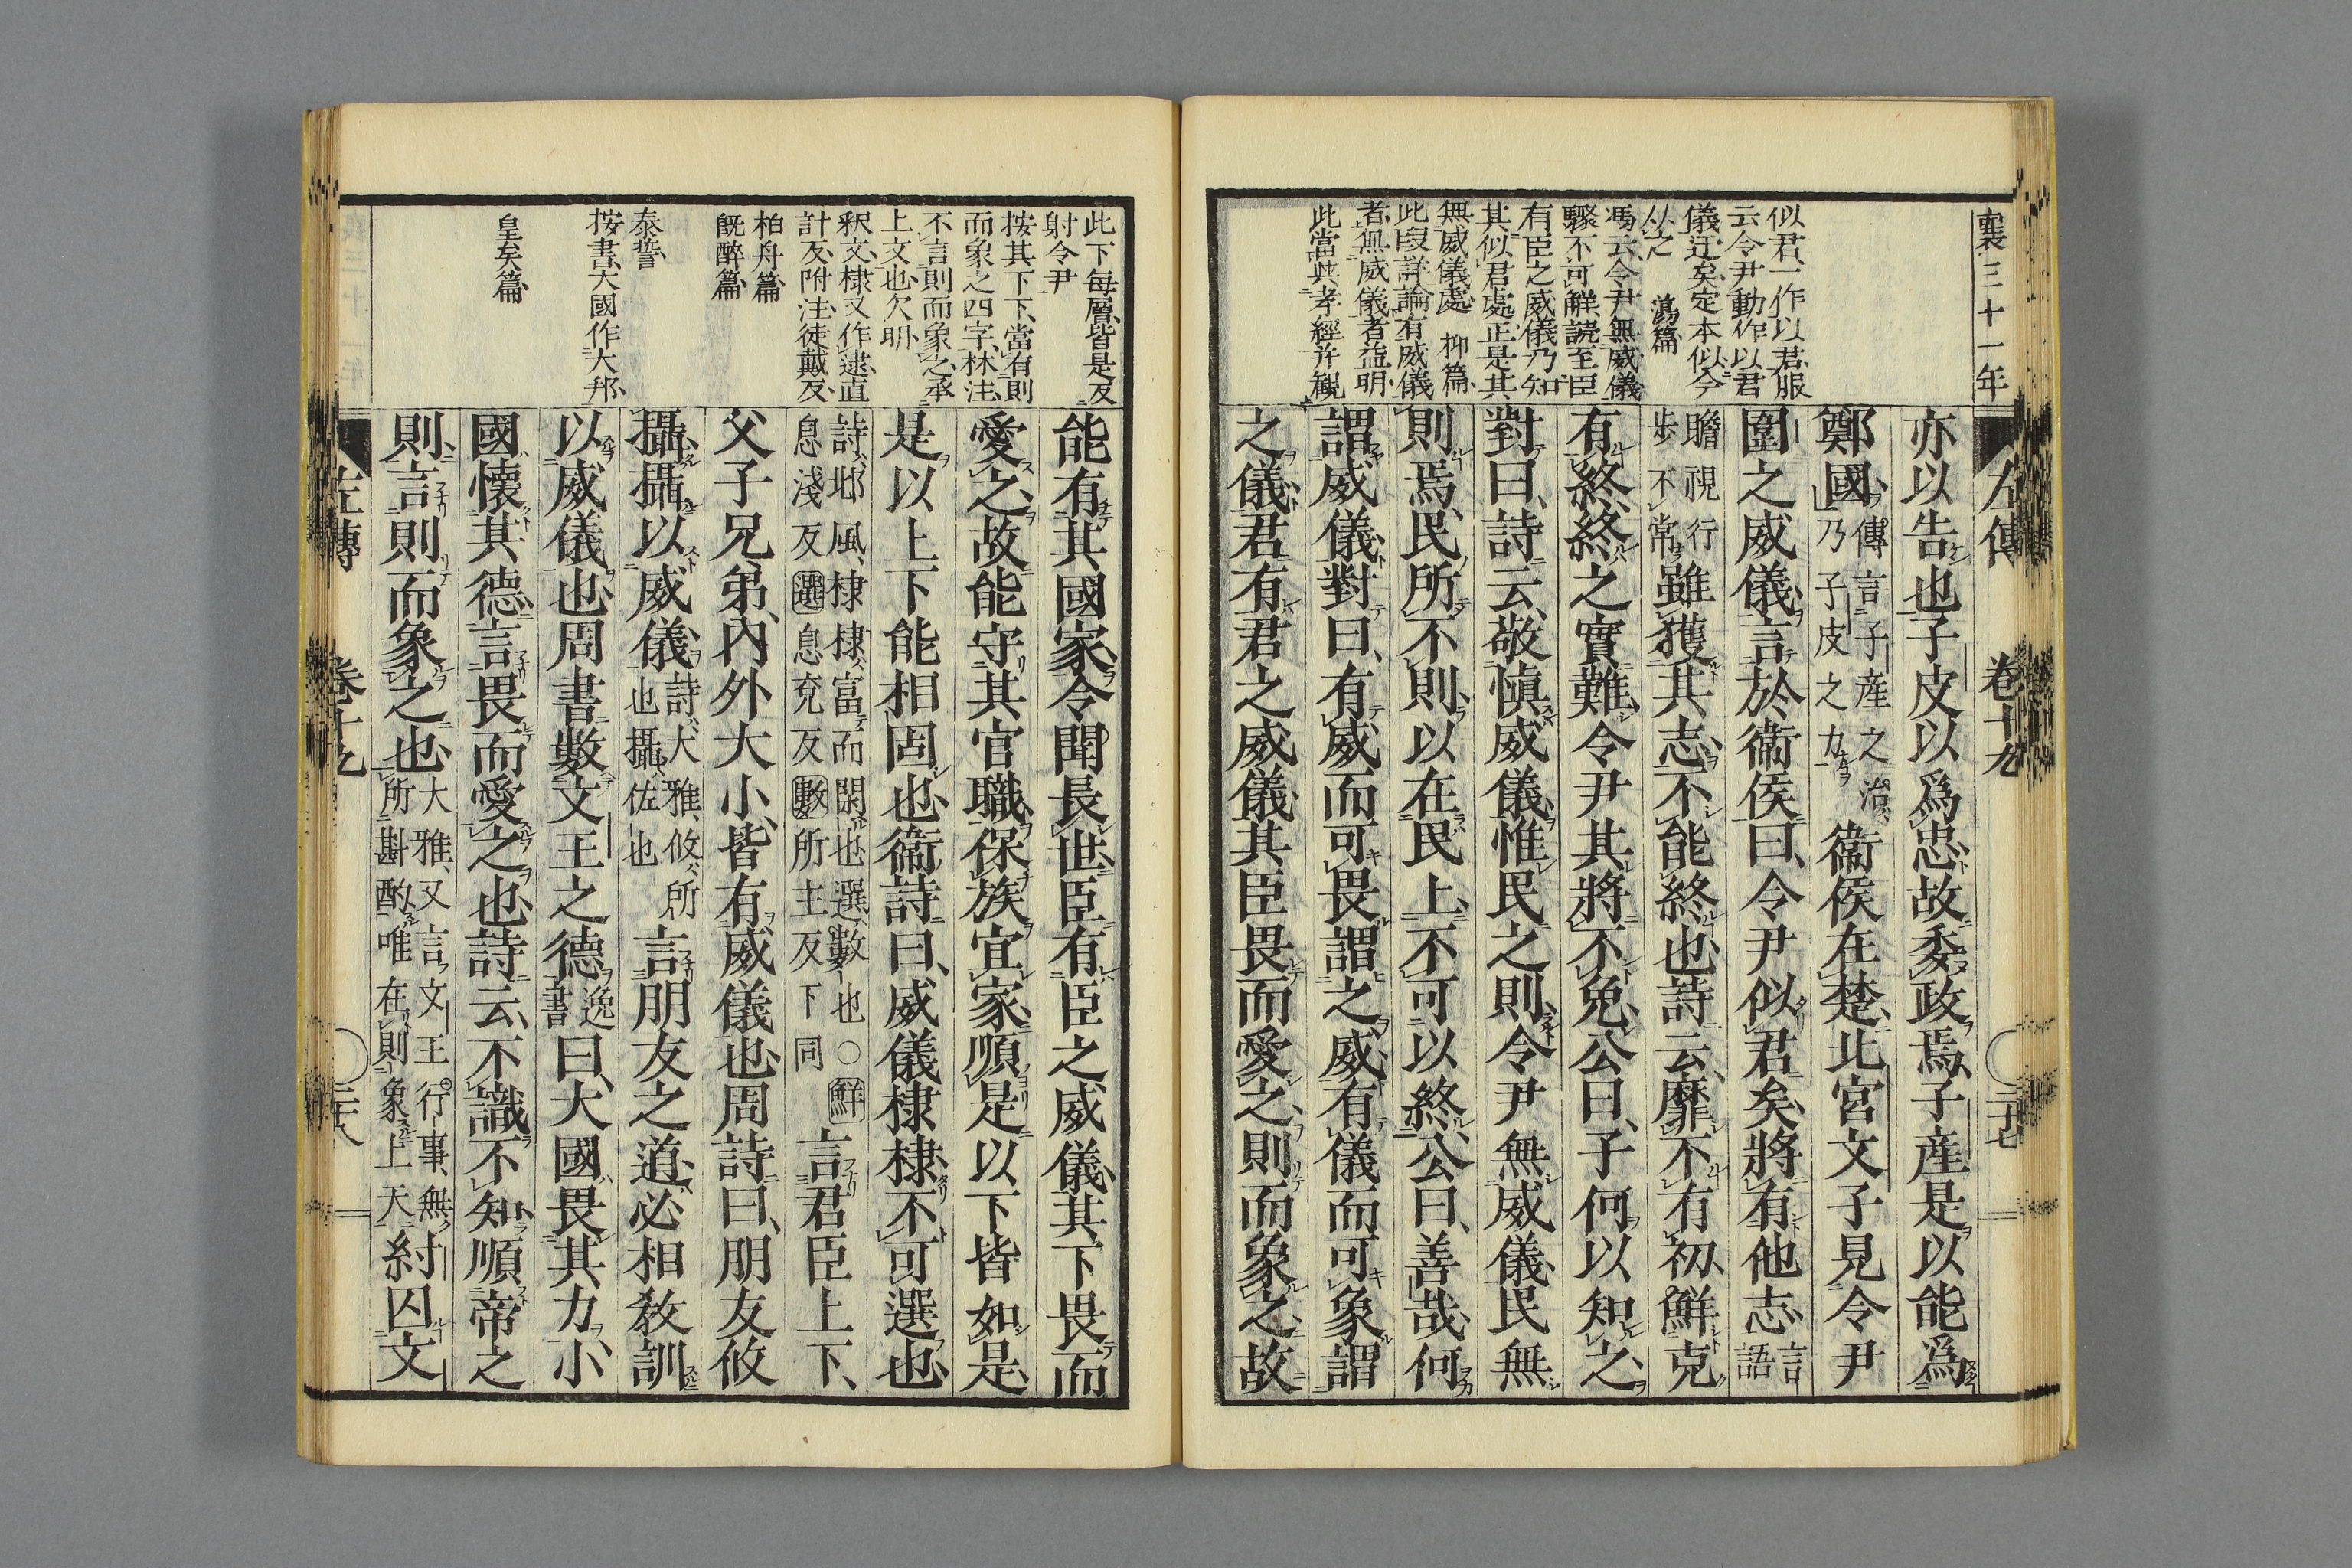 襄三十一年
左傳 卷十九 二十七
似君一作以君服
云令尹動作以君
儀迂矣定本似令
从之 蕩篇
馮云令尹無威儀
驟不可解読至臣
有臣之威儀乃知
其似君處正是其
無威儀處 抑篇
此段詳論有威儀
者無威儀者益明
此當與孝經并観
亦以告也子皮以爲忠故委政焉子産是以能爲
鄭國傳言子産之治乃子皮之力衞侯在楚北宮文子見令尹
圍之威儀言於衞侯曰令尹似君矣將有他志言語
瞻視行步不常雖獲其志不能終也詩云靡不有初鮮克
有終終之實難令尹其將不免公曰子何以知之
對曰詩云敬愼威儀惟民之則令尹無威儀民無
則焉民所不則以在民上不可以終公曰善哉何
謂威儀對曰有威而可畏謂之威有儀而可象謂
之儀君有君之威儀其臣畏而愛之則而象之故
此下每層皆是反
射令尹
按其下下當有則
而象之四字林注
不言則而象之承
上文也欠明
釈文棣又作逮直
計反附注徒戴反
柏舟篇
既醉篇
泰誓
按書大國作大邦
皇矣篇
能有其國家令聞長世臣有臣之威儀其下畏而
愛之故能守其官職保族宜家順是以下皆如是
是以上下能相固也衞詩曰威儀棣棣不可選也
詩邶風棣棣富而閑也選數也○鮮息淺反選息兗反數所主反下同言君臣上下
父子兄弟內外大小皆有威儀也周詩曰朋友攸
攝攝以威儀詩大雅攸所也攝佐也言朋友之道必相敎訓
以威儀也周書數文王之德逸書曰大國畏其力小
國懷其德言畏而愛之也詩云不識不知順帝之
則言則而象之也大雅又言文王行事無所斟酌唯在則象上天紂囚文
左傳 卷十九 二十八